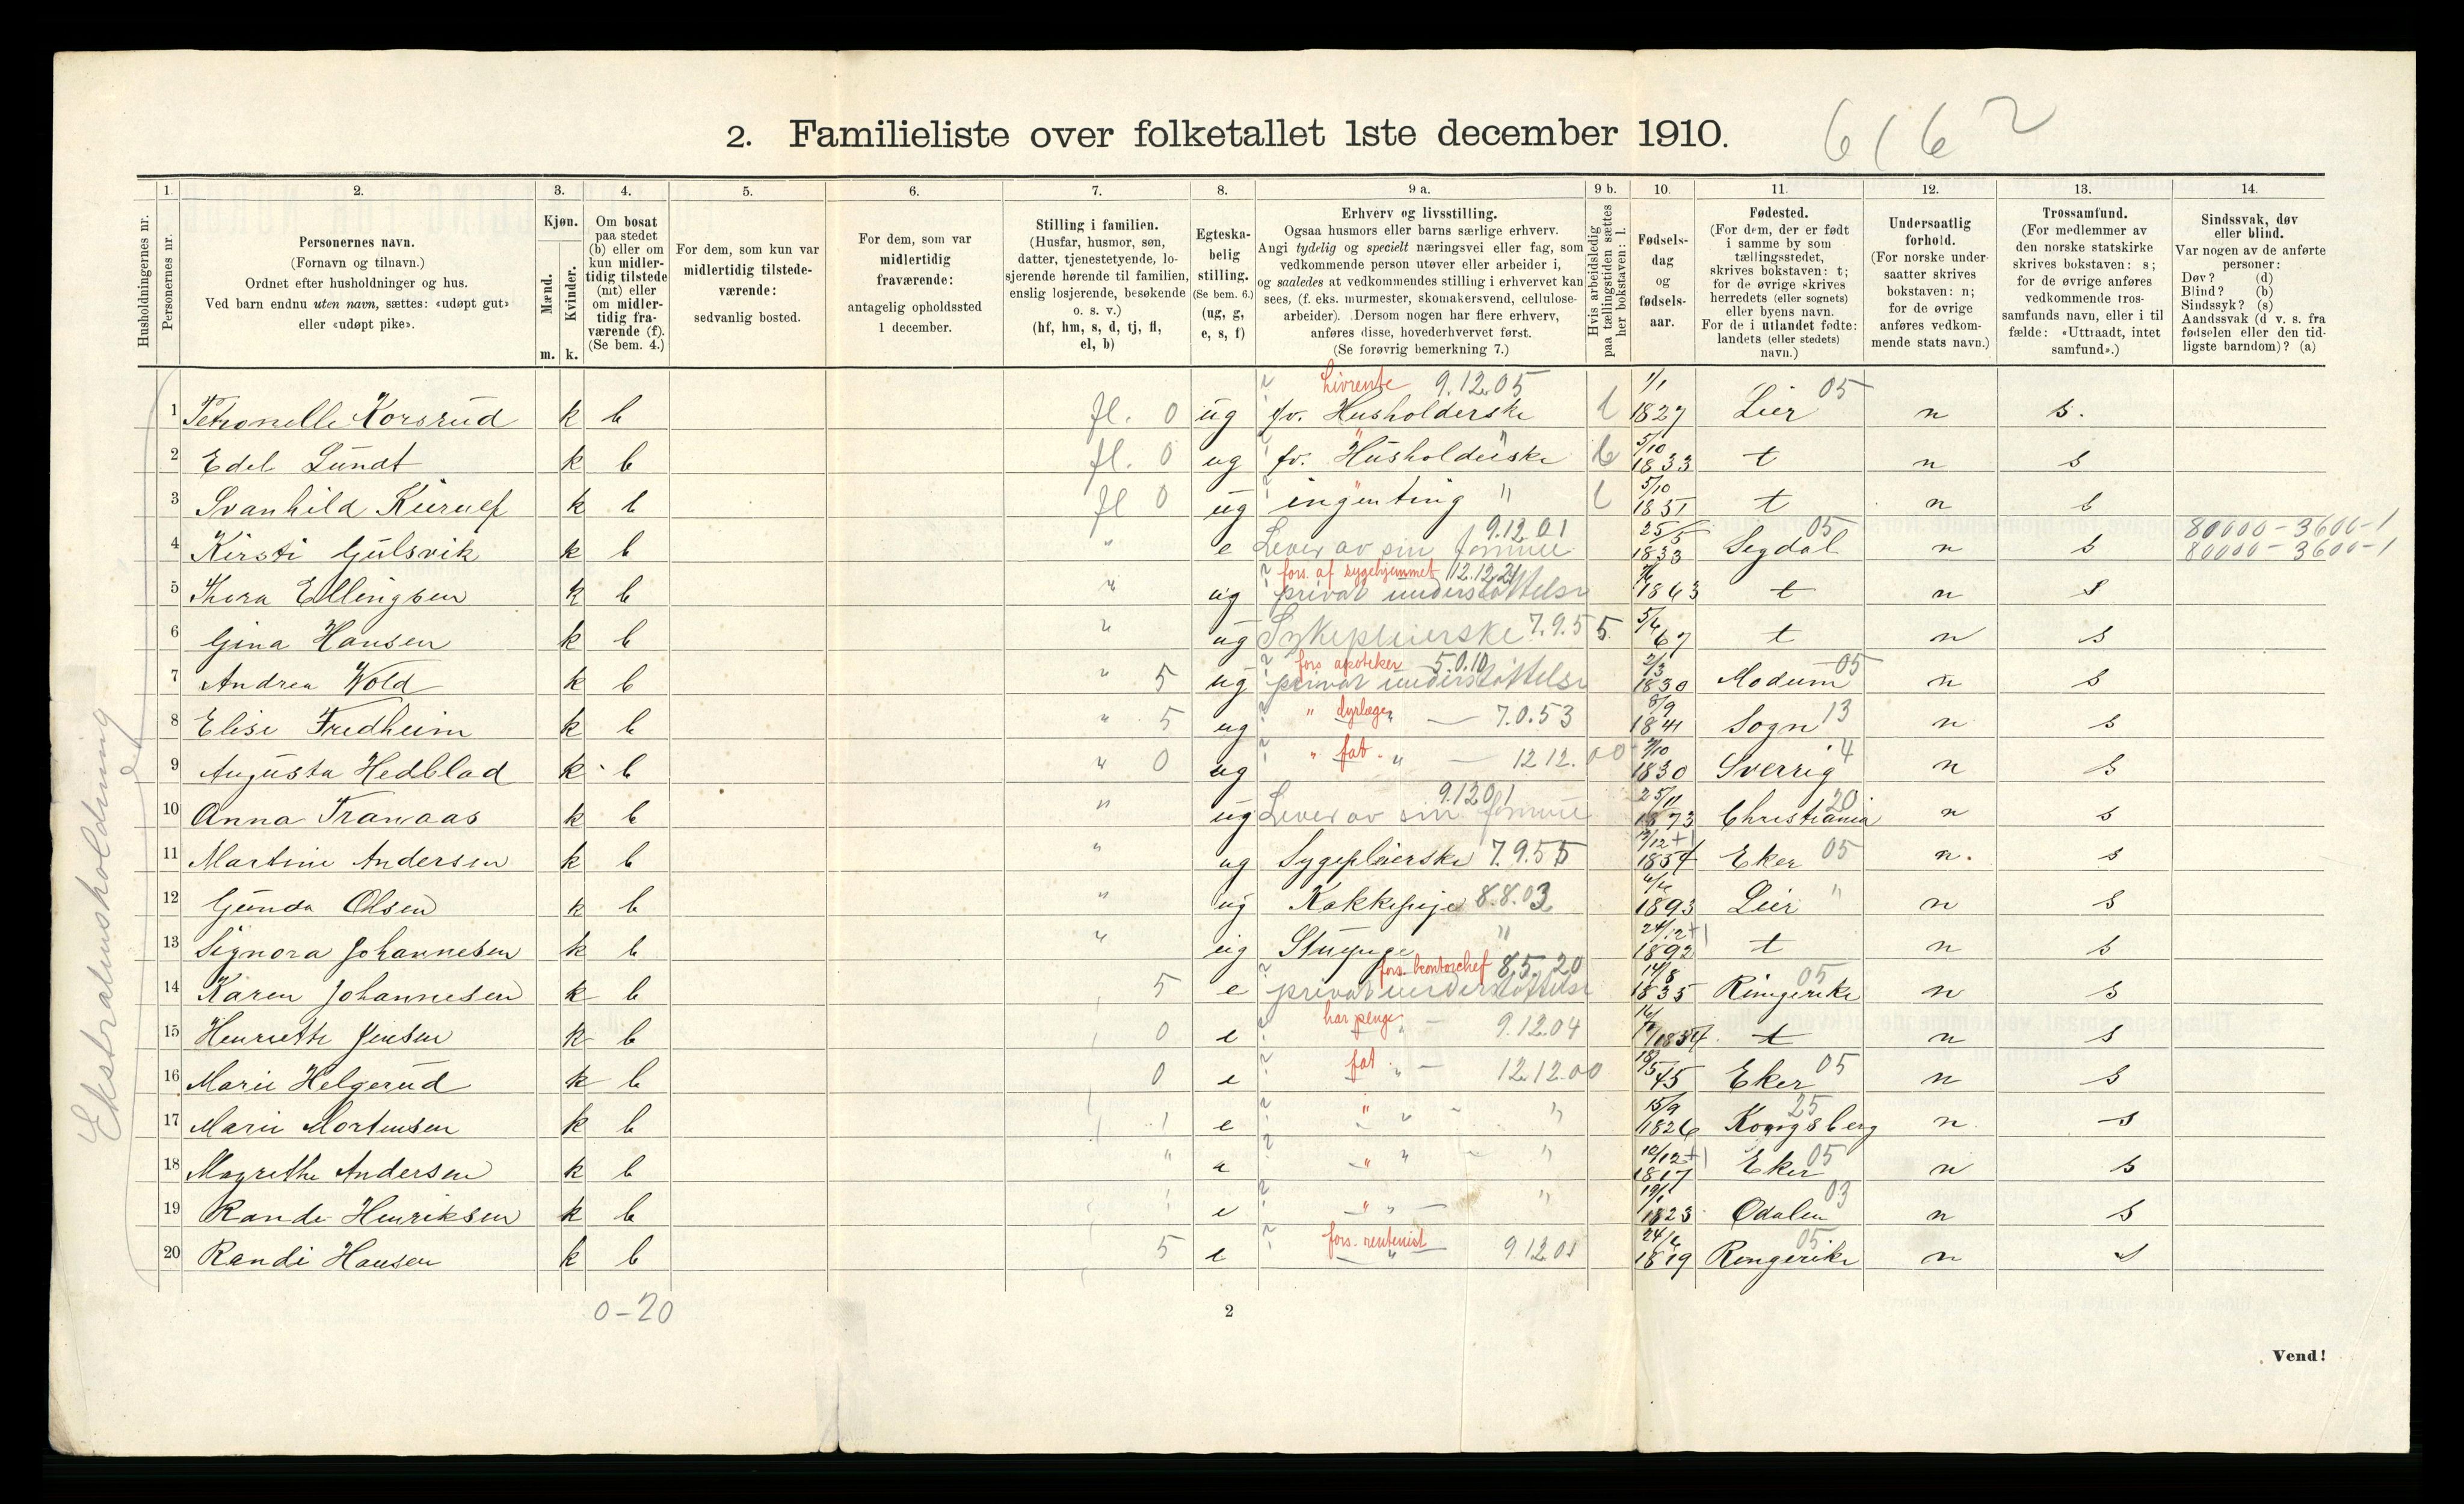 2. Familieliste over folketallet 1ste december 1910.
6162
Husholdningernes nr.
1. Personernes nr.
2. Personernes navn. (Fornavn og tilnavn.) Ordnet efter husholdninger og hus. Ved barn endnu uten navn, sættes: «udøpt gut» eller «udøpt pike».
3. Kjøn. Mænd. m. Kvinder. k.
4. Om bosat paa stedet (b) eller om kun midlertidig tilstede (mt) eller om midlertidig fraværende (f). (Se bem. 4.)
5. For dem, som kun var midlertidig tilstedeværende: sedvanlig bosted.
6. For dem, som var midlertidig fraværende: antagelig opholdssted 1 december.
7. Stilling i familien. (Husfar, husmor, søn, datter, tjenestetyende, losjerende hørende til familien, enslig losjerende, besøkende o. s. v.) (hf, hm, s, d, tj, fl, el, b)
8. Egteskabelig stilling. (Se bem. 6.) (ug, g, e, s, f)
9 a. Erhverv og livsstilling. Ogsaa husmors eller barns særlige erhverv. Angi tydelig og specielt næringsvei eller fag, som vedkommende person utøver eller arbeider i, og saaledes at vedkommendes stilling i erhvervet kan sees, (f. eks. murmester, skomakersvend, cellulosearbeider). Dersom nogen har flere erhverv, anføres disse, hovederhvervet først. (Se forøvrig bemerkning 7.)
9 b. Hvis arbeidsledig paa tællingstiden sættes her bokstaven: l.
10. Fødselsdag og fødselsaar.
11. Fødested. (For dem, der er født i samme by som tællingsstedet, skrives bokstaven: t; for de øvrige skrives herredets (eller sognets) eller byens navn. For de i utlandet fødte: landets (eller stedets) navn.)
12. Undersaatlig forhold. (For norske undersaatter skrives bokstaven: n; for de øvrige anføres vedkommende stats navn.)
13. Trossamfund. (For medlemmer av den norske statskirke skrives bokstaven: s; for de øvrige anføres vedkommende trossamfunds navn, eller i tilfælde: «Uttraadt, intet samfund».)
14. Sindssvak, døv eller blind. Var nogen av de anførte personer: Døv? (d) Blind? (b) Sindssyk? (s) Aandssvak (d v. s. fra fødselen eller den tidligste barndom)? (a)
Ekstrahusholdning
Livrente 9.12.05
1 Petronelle Korsrud k b fl. 0 ug fv. Husholderske l 1/1 1827 Lier 05 n s.
2 Edel Lundt k b fl. 0 ug fv. Husholderske " l 5/10 1833 t n s
3 Svanhild Kierulf k b fl 0 ug ingenting " l 5/10 1851 t n s
4 Kirsti Gulsvik k b " e Lever av sin formue 9.12.01 25/5 1833 Sigdal 05 n s 80000-3600-1 80000-3600-1
5 Thora Ellingsen k b " ug fors. af sygehjemmet 12.12.21 privat understøttelse 1863 t n s
6 Gina Hansen k b " ug Sykepleierske 7.9.55 5/4 67 t n s
7 Andrea Wold k b " 5 ug fors apoteker 5.0.10 privat understøttelse 2/3 1830 Modum 05 n s
8 Elise Fredheim k b " 5 ug " dyrlæge " — 7.0.53 8/9 1841 Sogn 13 n s
9 Augusta Hedblad k b " 0 ug " fat. " — 12 12.00 7/10 1830 Sverrig 4 n s
10 Anna Tranaas k b " ug Lever av sin formue 9.1201 25/11 1873 Christiania 20 n s
11 Martine Andersen k b " ug Sygepleierske 7.9.55 19/12+1 1854 Eker 05 n. s
12 Gunda Olsen k b " ug Kokkepige 8.8.03 1893 Lier " n s
13 Signora Johannesen k b " ug Stuepige " 24/12+1 1892 t n s
14 Karen Johannesen k b 5 e fors. kontorchef 85.20 privat understøttelse 14/8 1835 Ringerike 05 n s
15 Henriette Jensen k b 0 e har penge " — 9.12.04 1834 t n s
16 Marie Helgerud k b 0 e fat. " — 12.12.00 18/5 45 Eker 05 n s
17 Marie Mortensen k b e " " — " 15/9 1826 Kongsberg 25 n s
18 Magrethe Andersen k b " e " " — " 12/12+1 1817 Eker 05 n s
19 Rande Henriksen k b e " " — " 19/1 1823 Odalen 03 n s
20 Randi Hansen k b 5 e fors. rentenist — " 9 12.01 24/6 1819 Ringerike 05 n s
0-20
2
Vend!